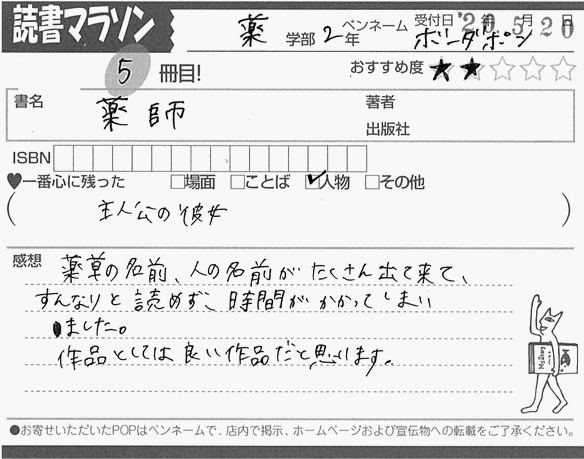 読書マラソン
薬 学部 2年
ペンネーム ボンダボン
受付日 '20年 5月 20日
5 冊目!
おすすめ度 ★★☆☆☆
書名 薬師
著者
出版社
ISBN
♥一番心に残った □場面 □ことば ☑人物 □その他
( 主人公の彼女 )
感想 薬草の名前、人の名前がたくさん出て来て、
すんなりと読めずに時間がかかってしまい
ました。
作品としては良い作品だと思います。
●お寄せいただいたPOPはペンネームで、店内で掲示、ホームページおよび宣伝物への転載をご了承ください。